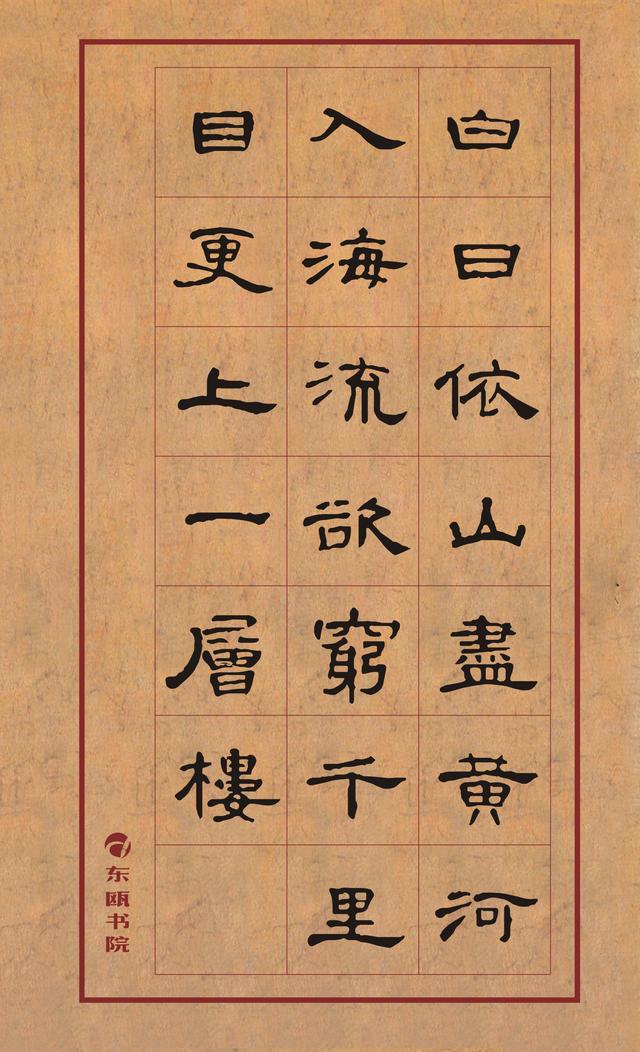 白日依山盡黄河
入海流欲窮千里
目更上一層樓
东瓯书院